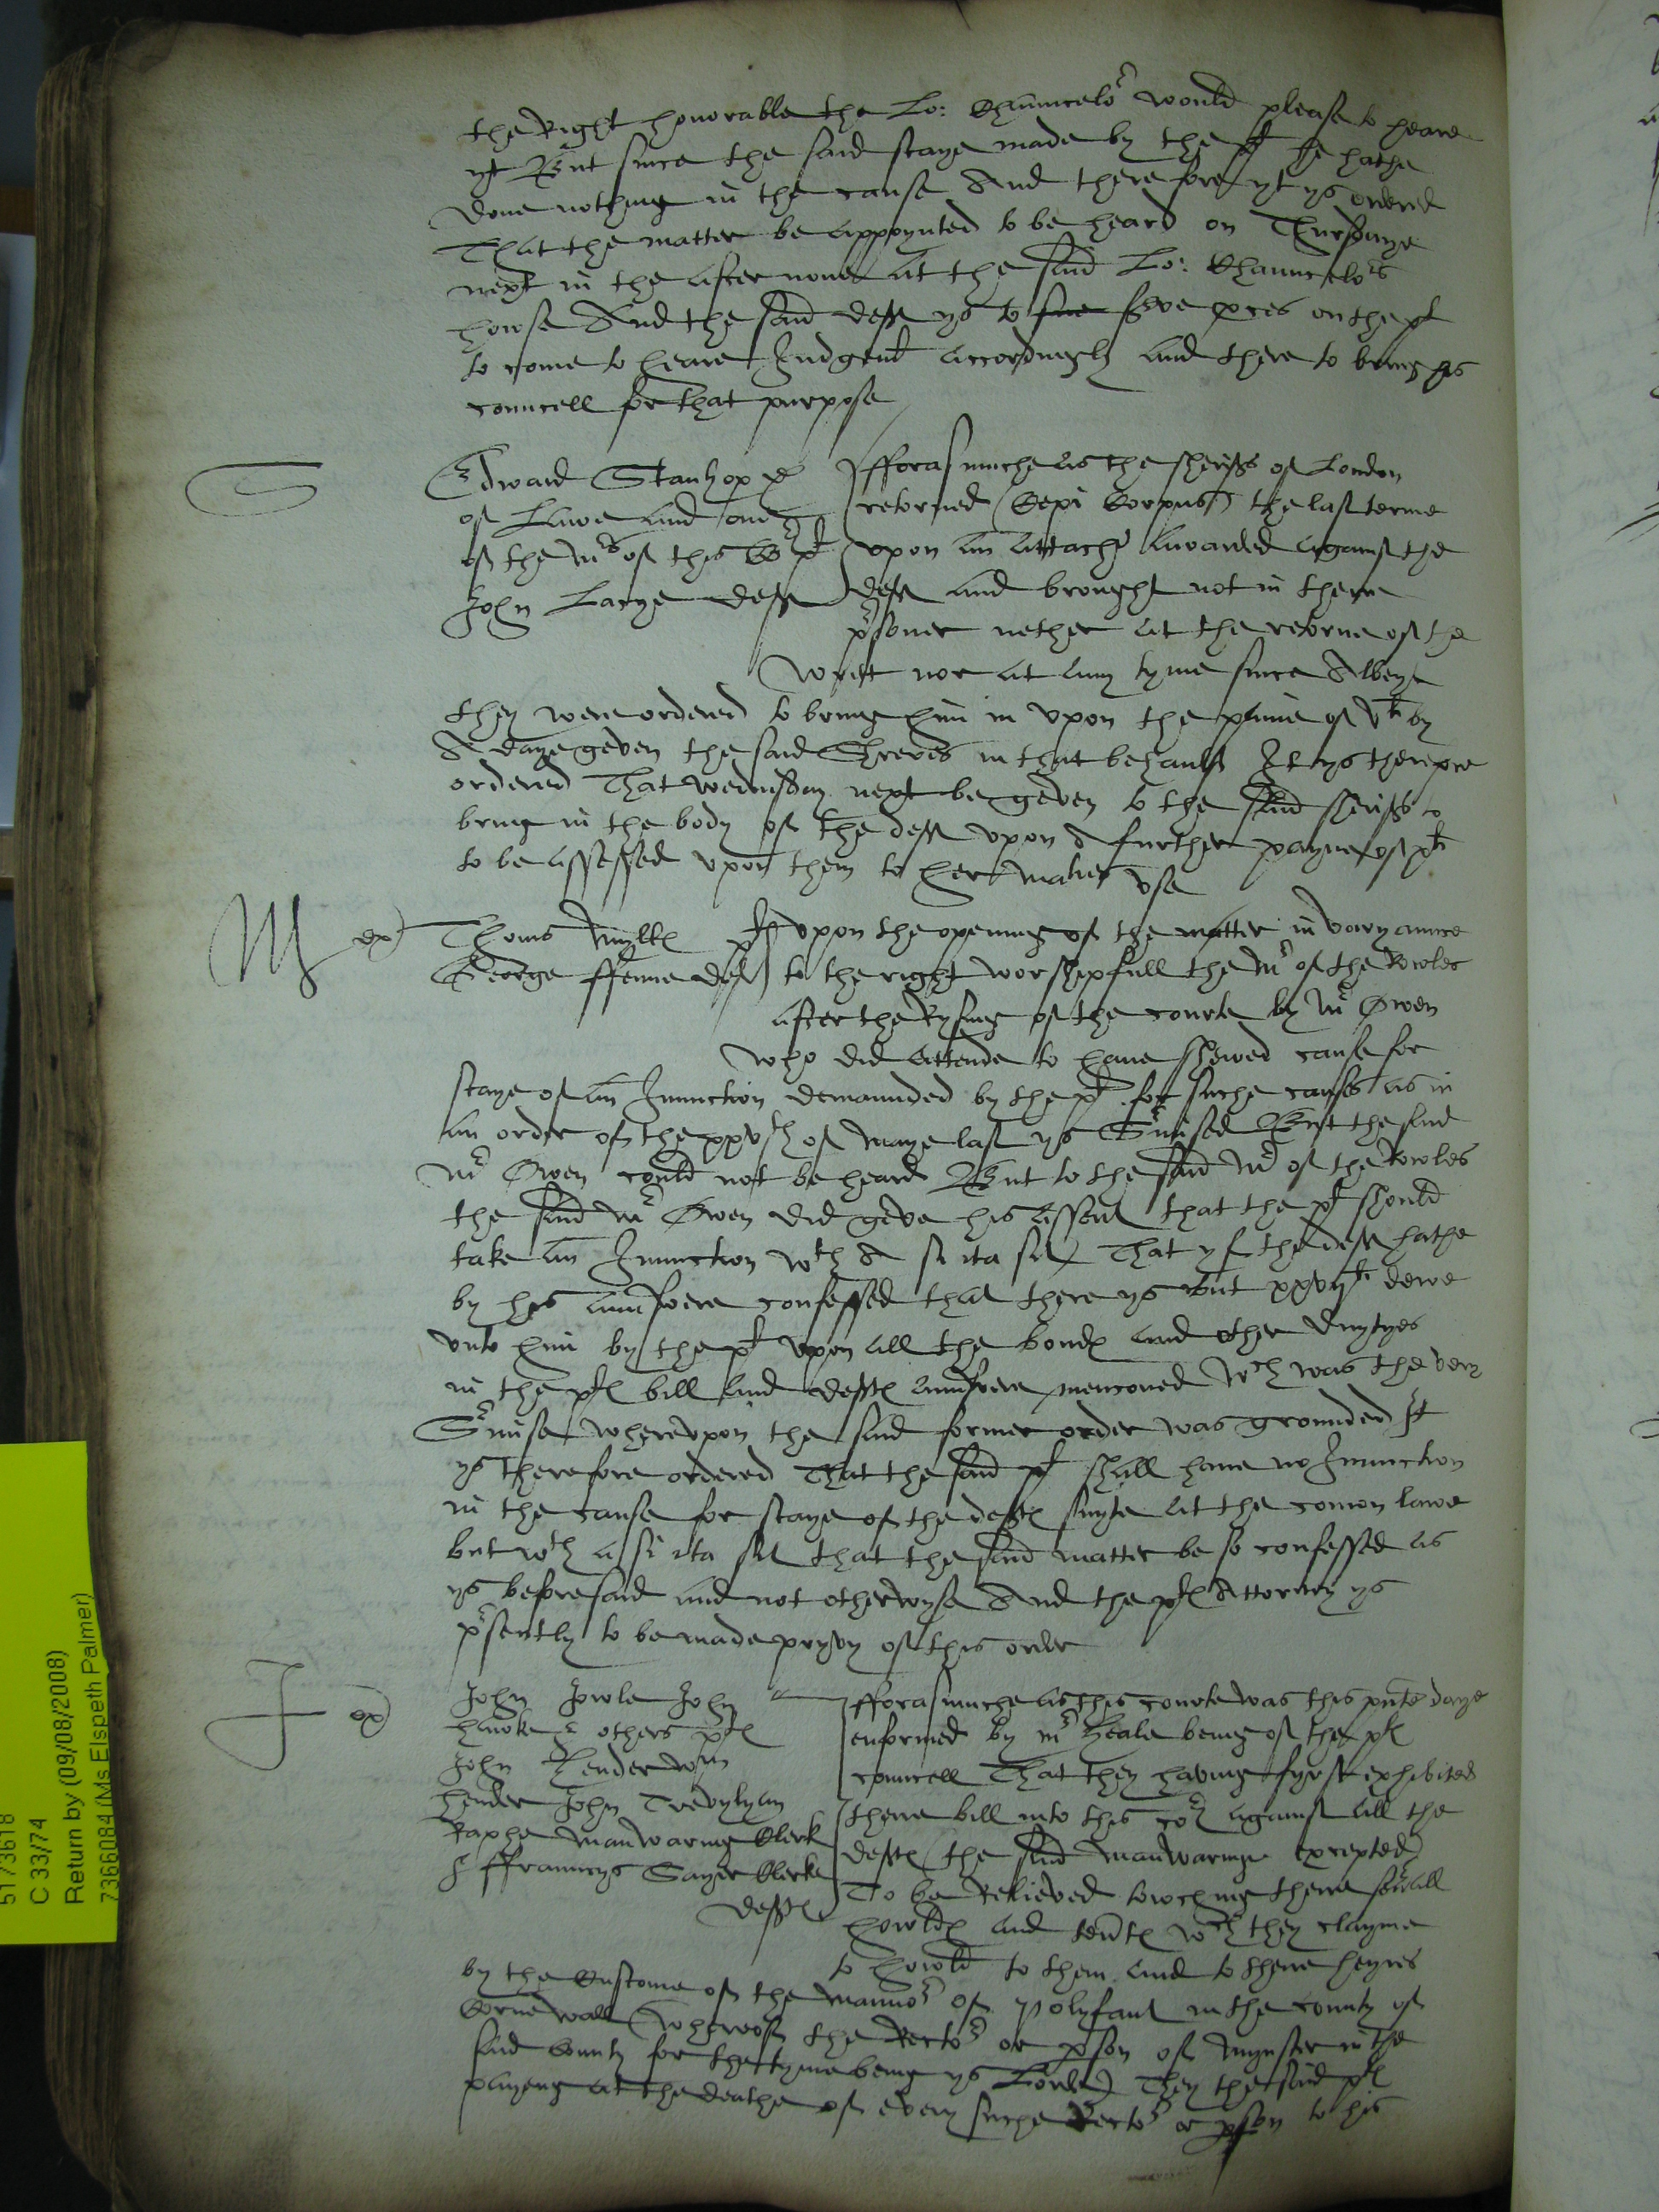 the Right honorable the Lo: Chauncelor would please to heare
yt But since the said staye made by the plt he hathe
done nothing in the cause And therefore yt ys ordered
That the matter be appoynted to be heard on Thursdaye
next in the afternone at the said Lo: Chauncelors
howse And the said deft ys to sue serve proces on the plt
to come to heare Judgmt accordingly and there to bring his
councell for that purpose
S
Edward Stanhop
of Lawe and one
of the Mrs of this Cort plt
John Lacye deft
fforasmuche as the sheriffs of London
retorned (Cepi Corpus) the last terme
vpon an attachmt awarded against the
deft and brought not in there
prsoner nether at the retorne of the
writt nor at any tyme since Albeyt
they were ordered to bring him in vpon the paine of vli by
A daye geven the said Shreves in that behaulf It ys therefore
ordered That wednisday next be geven to the said sheriffs to
bring in the body of the deft vpon A further payne of xli
to be assessed vpon them to her maties vse
M
ex)
Thoms Myll plt
George ffenne deft
vpon the opening of the matter in varyaunce
to the right worshipfull the Mr of the Rowles
after the Rysing of the courte by Mr Owen
who did attende to haue shewed cause for
staye of an Iniunction demaunded by the plt for suche causes as in
an order of the xxvth of Maye last ys Surmised But the said
Mr Owen could not be heard But to the said Mr of the Rowles
the said Mr Owen did geve his assent that the plt should
take an Iniunction wth A si ita sit That yf the deft hathe
by his aunswere confessed that there ys but xxvijli dewe
vnto him by the plt vpon all the bonds and other Duytyes
in the plts bill and defts aunswere mencioned wch was the very
Surmise wherevpon the said former order was grounded It
ys therefore ordered That the said plt shall haue no Iniunction
in the cause for staye of the defts suyte at the comon lawe
but wth a si ita sit that the said matter be so confessed as
ys beforesaid and not otherwyse And the plts Attorney ys
prsently to be made pryvy of this order
J
ex)
John Jowle John
hauke & others plts
John Hender Wm
hender John Trevylyan
Raphe Manwaring Clerk
& ffrauncys Sayer Clerke
defts
fforasmuche as this courte was this pnte daye
enformed by Mr Heale being of the plts
councell That they having fyrst exhibited
there bill into this cort against all the
defts (the said Manwaringe excepted)
To be Relieved towching there seuerall
howlds and tents wch they clayme
to howld to them and to there heyres
by the Custome of the Mannor of Polyfant in the county of
Cornewall (whereof the Rector or pson of Mynster in the
said county for the tyme being ys Lorde) They the said plts
payeng at the deathe of every suche Rector or pson to his
5173618
C 33/74
Return by (09/08/2008)
7366084 (Ms Elspeth Palmer)